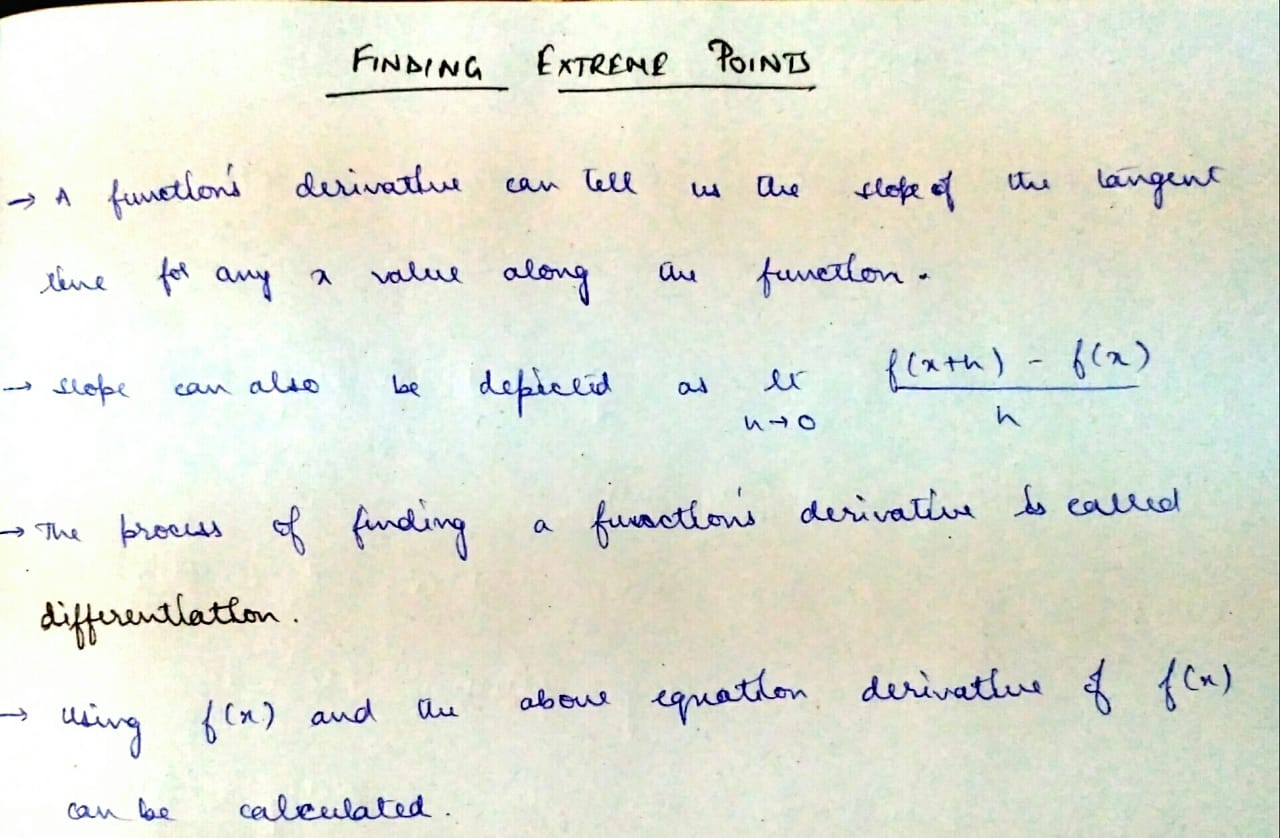 FINDING EXTREME POINTS
→ A function's derivative can tell us the slope of the tangent
line for any x value along the function.
→ slope can also be depicted as lt h→0 f(x+h) - f(x) / h
→ The process of finding a function's derivative is called
differentiation.
→ using f(x) and the above equation derivative of f(x)
can be calculated.